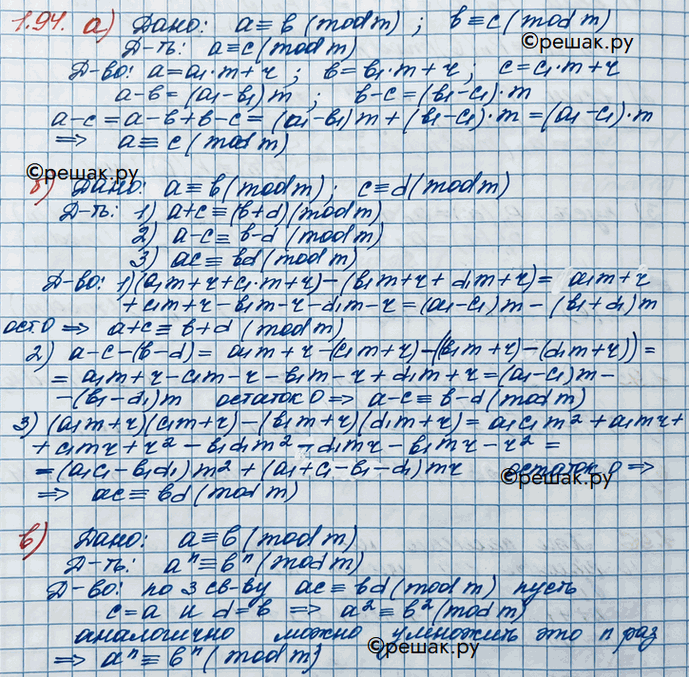 1.94. а) Дано: a≡b (mod m) ; b≡c (mod m)
Д-ть: a≡c (mod m)
©reшak.ру
Д-во: a=a₁·m+r ; b=b₁·m+r ; c=c₁·m+r
a-b=(a₁-b₁)m ; b-c=(b₁-c₁)·m
a-c=a-b+b-c=(a₁-b₁)m+(b₁-c₁)·m=(a₁-c₁)·m
⇒ a≡c (mod m)
©reшak.ру
б) Дано: a≡b (mod m); c≡d (mod m)
Д-ть: 1) a+c≡(b+d)(mod m)
2) a-c≡b-d (mod m)
3) ac≡bd (mod m)
Д-во: 1)(a₁m+r+c₁·m+r)-(b₁m+r+d₁m+r)= a₁m+r
+c₁m+r-b₁m-r-d₁m-r=(a₁-c₁)m-(b₁+d₁)m
ост 0 ⇒ a+c≡b+d (mod m)
2) a-c-(b-d)= a₁m+r-(c₁m+r)-((b₁m+r)-(d₁m+r))=
= a₁m+r-c₁m-r-b₁m-r+d₁m+r=(a₁-c₁)m-
-(b₁-d₁)m остаток 0 ⇒ a-c≡b-d (mod m)
3) (a₁m+r)(c₁m+r)-(b₁m+r)(d₁m+r)= a₁c₁m²+a₁mr+
+c₁mr+r²-b₁d₁m²-d₁mr-b₁mr-r²=
=(a₁c₁-b₁d₁)m²+(a₁+c₁-b₁-d₁)mr остаток 0 ⇒
©reшak.ру
⇒ ac≡bd (mod m)
в) Дано: a≡b (mod m)
Д-ть: aⁿ≡bⁿ (mod m)
Д-во: по 3 св-ву ac≡bd (mod m) пусть
c=a и d=b ⇒ a²≡b² (mod m)
аналогично можно умножить это n раз
⇒ aⁿ≡bⁿ (mod m)
©reшak.ру